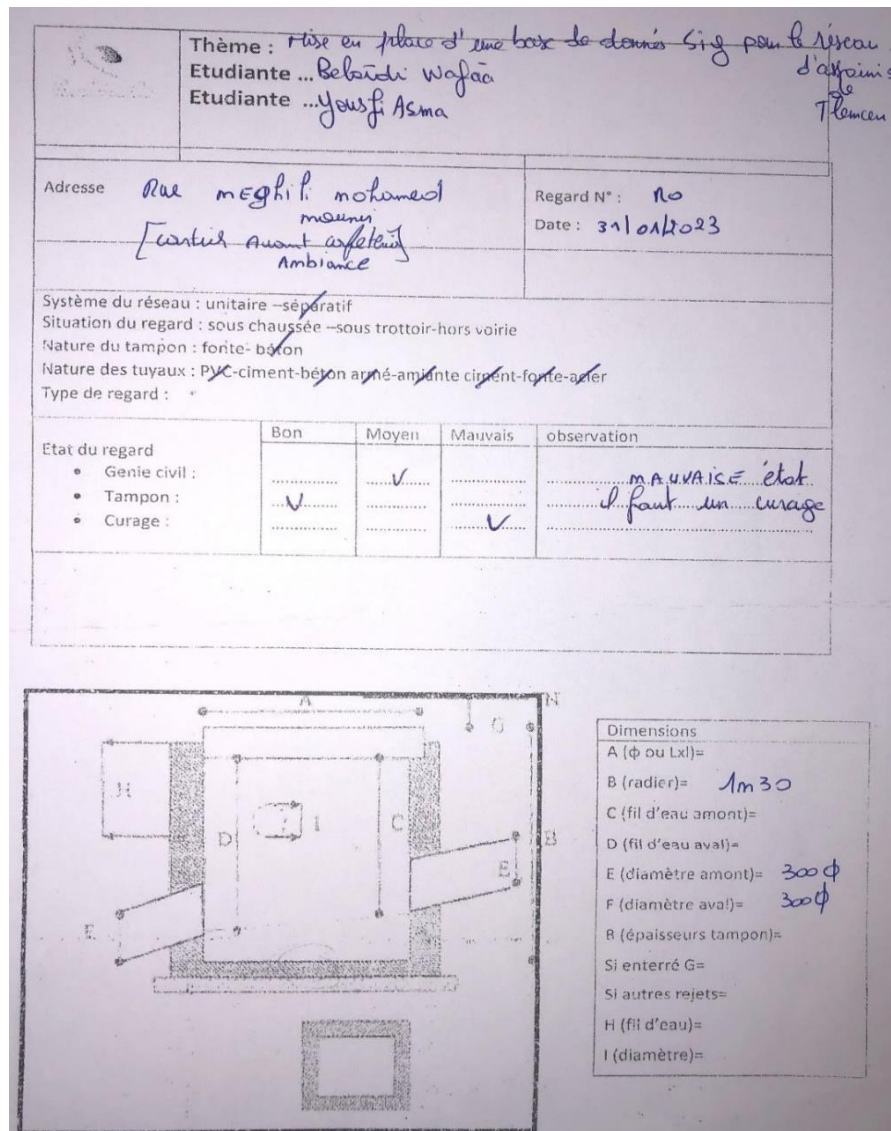 Thème : Mise en place d'une base de donnés Sig pour le réseau
d'assainis
de
Tlemcen
Etudiante ... Belaidi Wafàa
Etudiante ... Yousfi Asma
Adresse Rue mEghili mohamed
mounir
[Avant
Ambiance
Regard N° : R0
Date : 31/01/2023
Système du réseau : unitaire –séparatif
Situation du regard : sous chaussée –sous trottoir-hors voirie
Nature du tampon : fonte- béton
Nature des tuyaux : PVC-ciment-béton armé-amiante ciment-fonte-acier
Type de regard :
Etat du regard
Bon Moyen Mauvais observation
• Genie civil : V MAUVAISE état
• Tampon : V il faut un curage
• Curage : V
A N
G
H
D I C B
E
E
Dimensions
A (ф ou Lxl)=
B (radier)= 1m30
C (fil d'eau amont)=
D (fil d'eau aval)=
E (diamètre amont)= 300 ф
F (diamètre aval)= 300 ф
B (épaisseurs tampon)=
Si enterré G=
Si autres rejets=
H (fil d'eau)=
I (diamètre)=